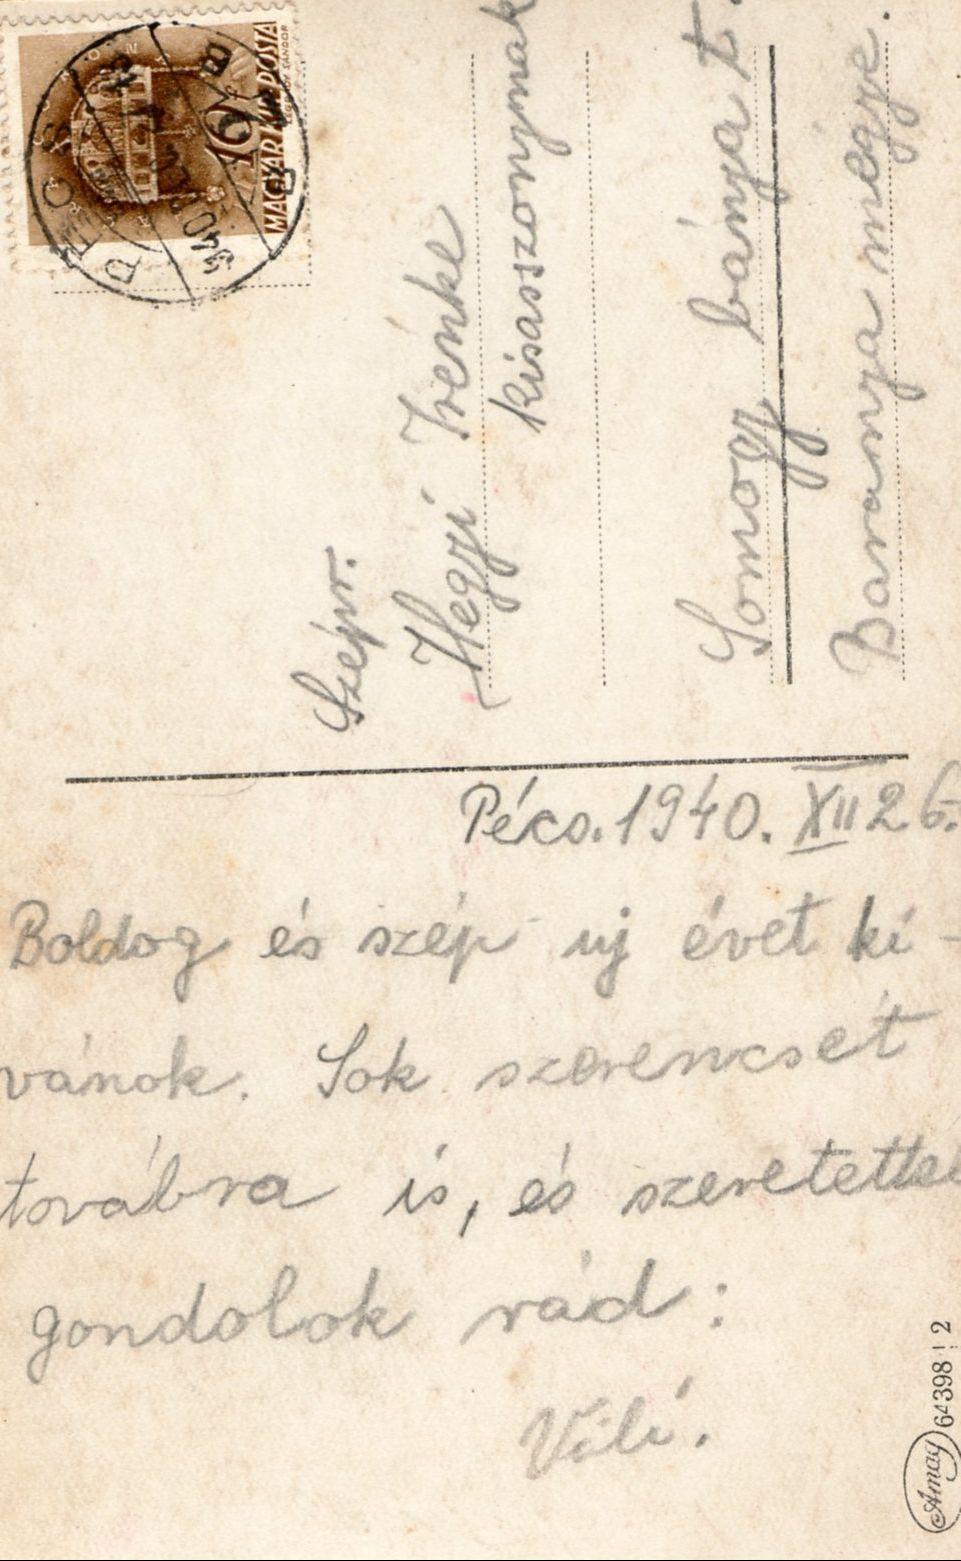 MAGYAR KIR. POSTA
10
PÉCS
Szépr.
Hegyi Irénke
kisasszonynak
Somogy bánya t.
Baranya megye.
Pécs. 1940. XII 26.
Boldog és szép uj évet kí-
vánok. Sok szerencsét
továbra is, és szeretettel
gondolok rád:
Vili.
Amag 64398 ! 2